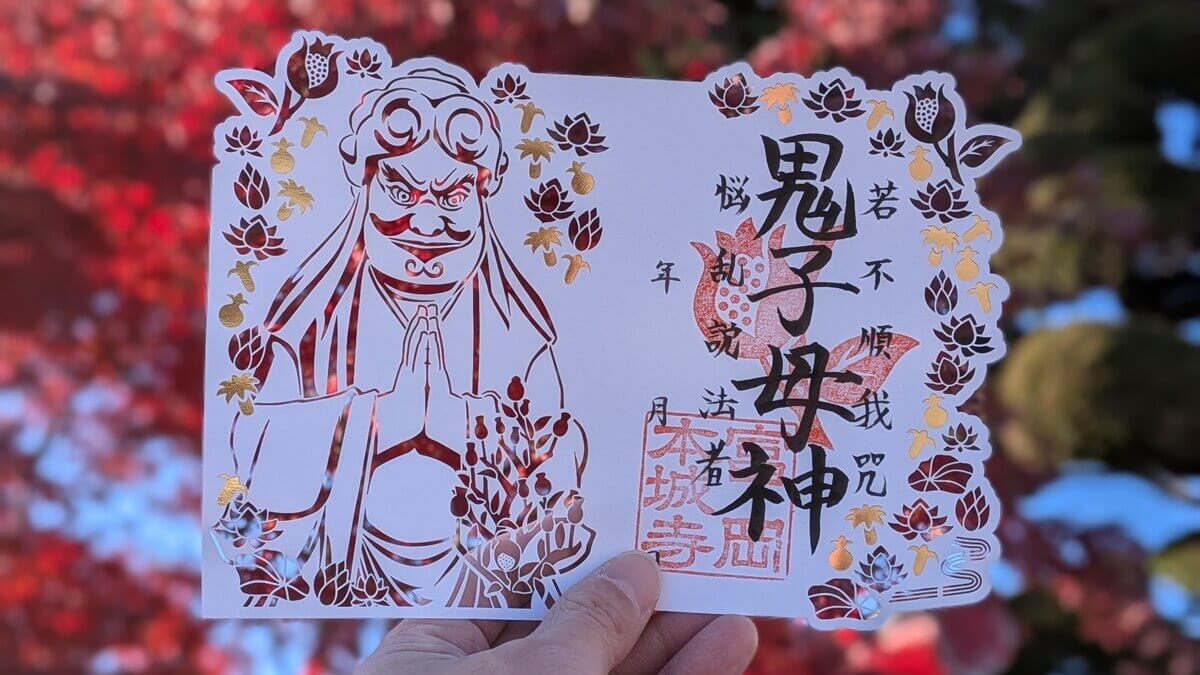 若不順我咒
鬼子母神
悩乱説法者
年
月
宮岡
本城寺